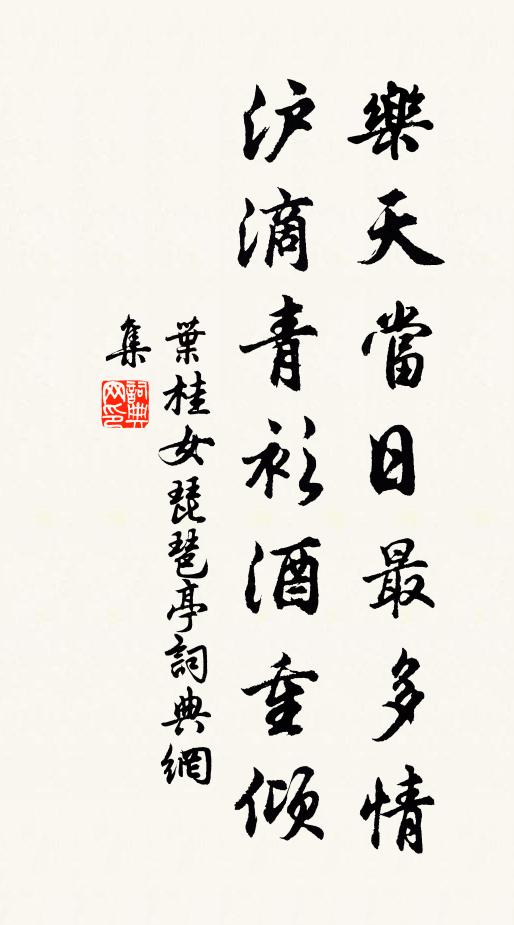 樂天當日最多情
沪滴青衫酒重傾
葉桂女琵琶亭詞典網
集
詞典
网印